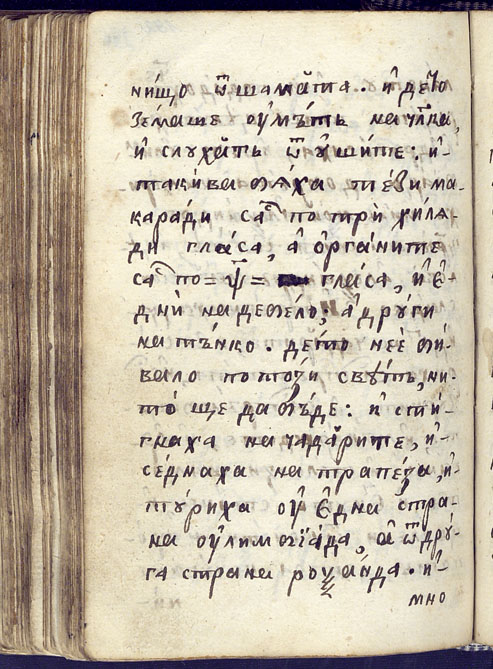 нищо ѿ шамата. и дето
земаше оумътъ на члка,
и слухатъ ѿ ушите: и-
такива бѧха тези ма-
каради са по три хиля-
ди гласа, а органите
са по = ѱ = гласа, и е-
дни на дебело; а други
на тънко. дето нее би-
вало по този светъ, ни-
то ще да бъде: и сти-
гнаха на чадърите, и-
седнаха на трапеза, и-
туриха оу една стра-
на оулимпїада, а ѿ дру-
га страна роѯанда. и-
мно